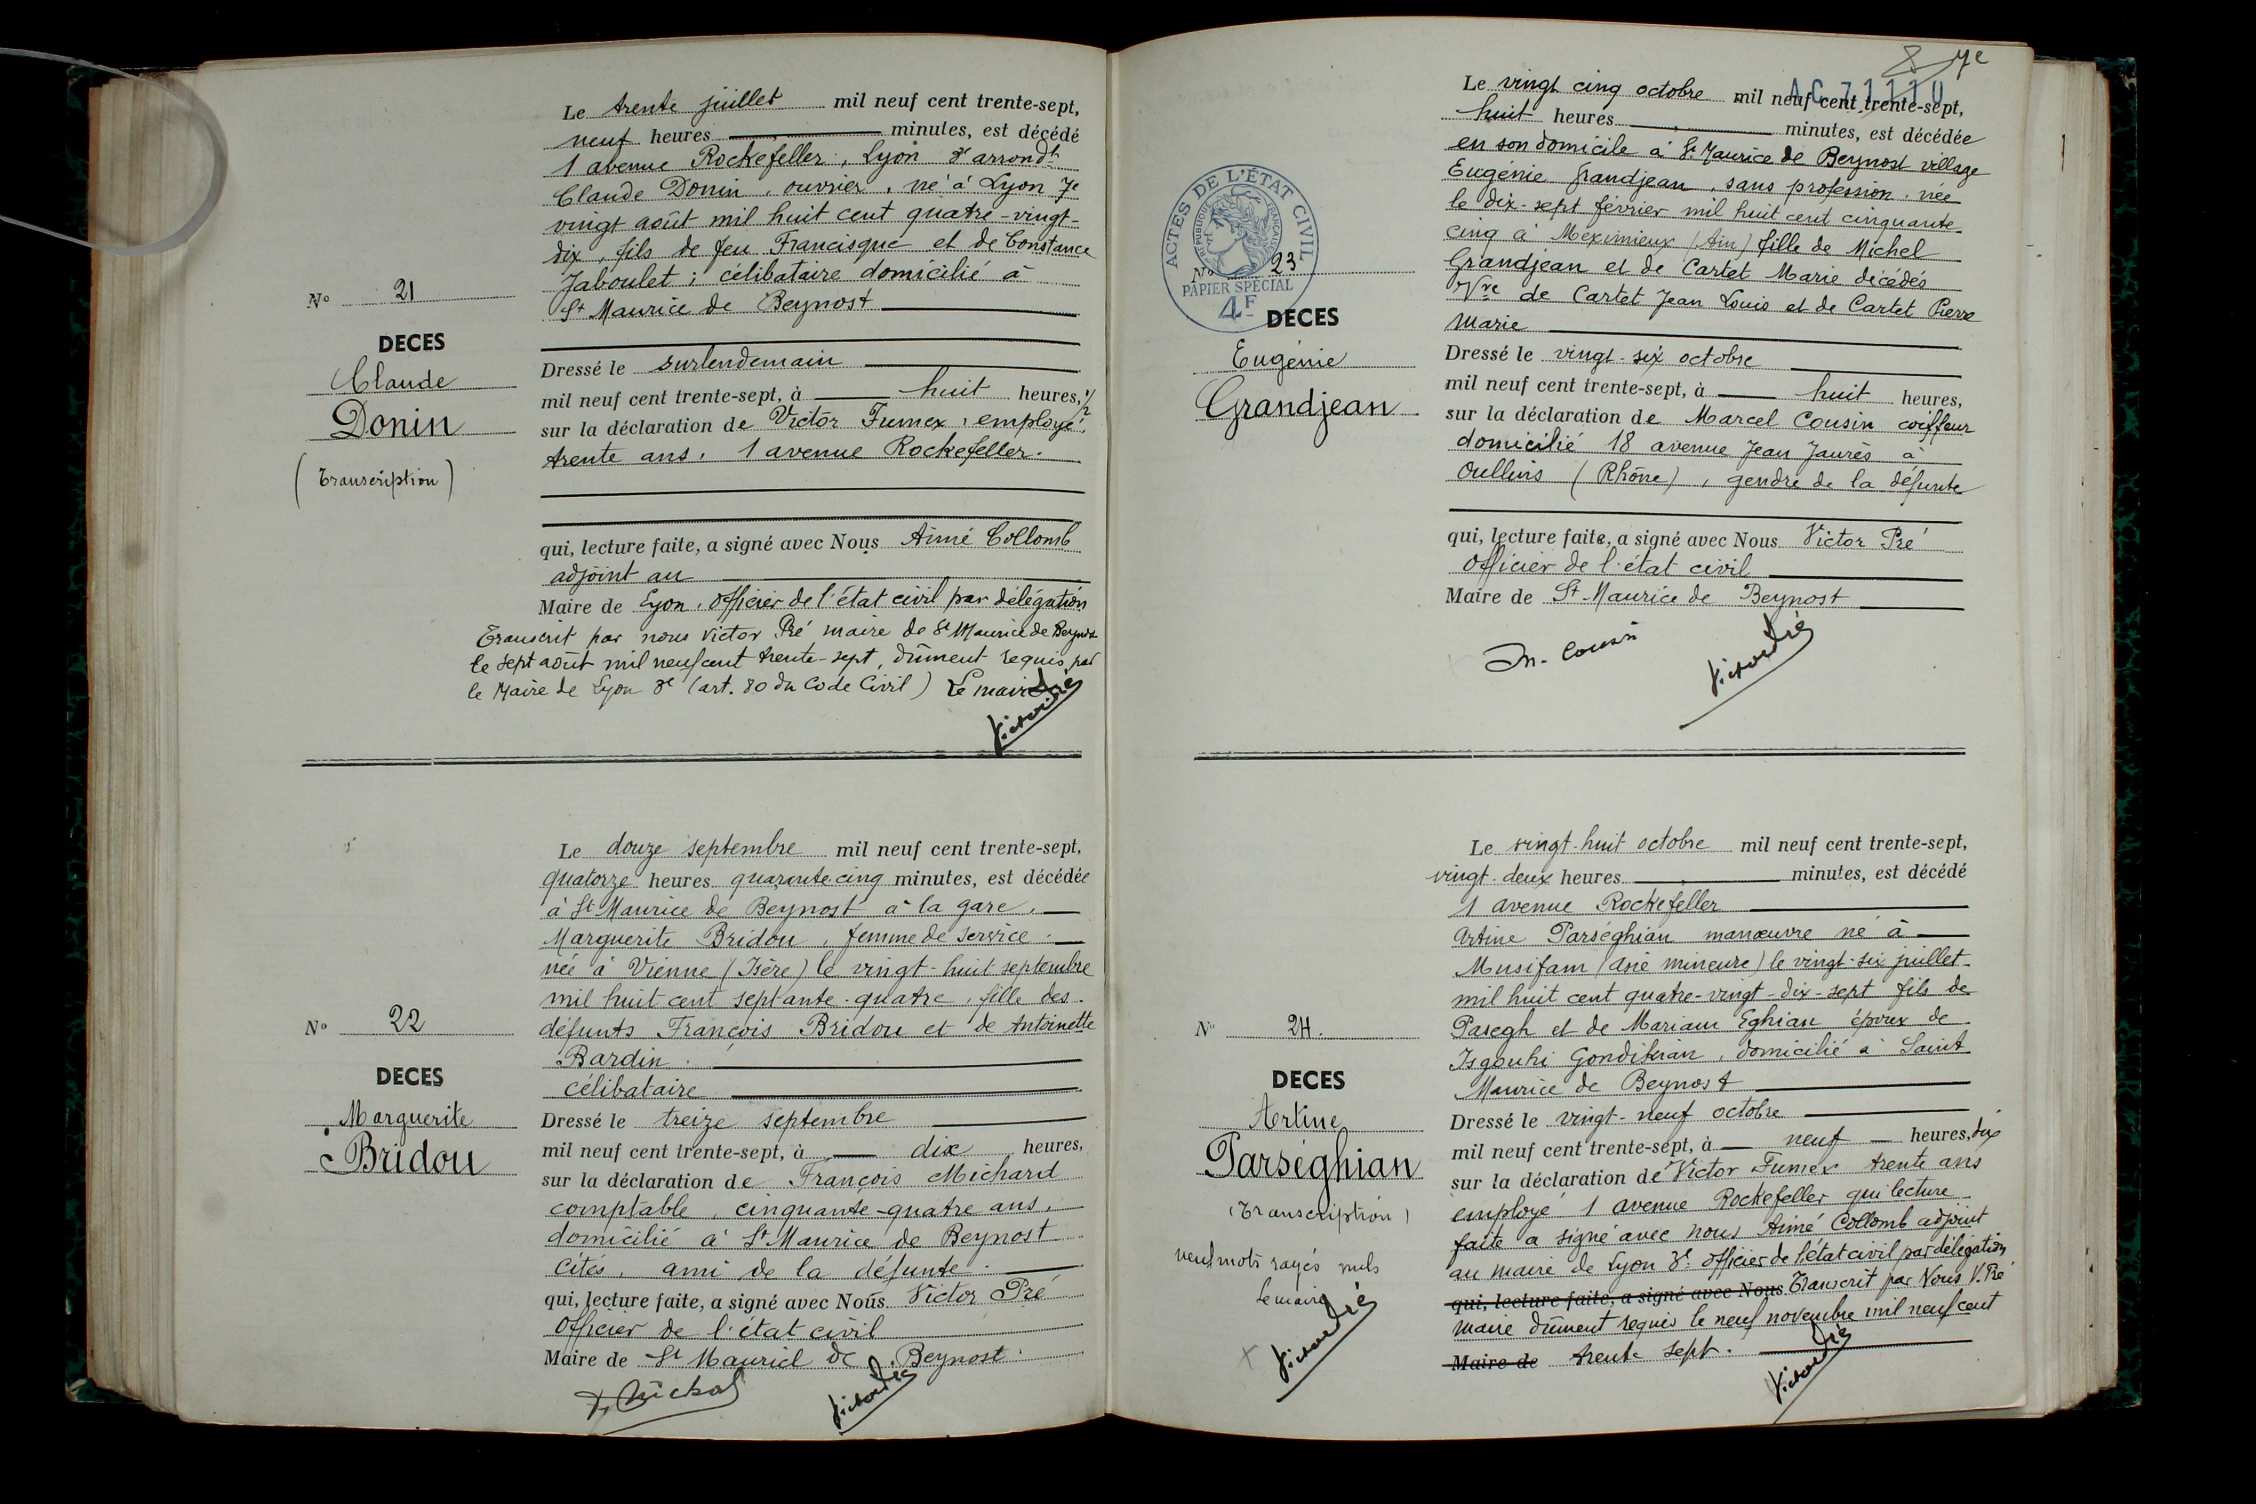 Le trente juillet mil neuf cent trente-sept,
neuf heures minutes, est décédé
1 avenue Rockefeller, Lyon 3e arrondt
Claude Donin, ouvrier, né à Lyon 7e
vingt août mil huit cent quatre-vingt-
dix, fils de feu Francisque et de Constance
Jaboulet ; célibataire domicilié à
St Maurice de Beynost
No 21
DECES
Claude
Donin
(Transcription)
Dressé le surlendemain
mil neuf cent trente-sept, à huit heures, 1/2
sur la déclaration de Victor Fumex, employé,
trente ans, 1 avenue Rockefeller.
qui, lecture faite, a signé avec Nous Aimé Collomb
adjoint au
Maire de Lyon, officier de l'état civil par délégation
Transcrit par nous Victor Pré maire de St Maurice de Beynost
le sept août mil neuf cent trente-sept, dûment requis par
le Maire de Lyon 3e (art. 80 du Code Civil) Le maire
Victor Pré
Le douze septembre mil neuf cent trente-sept,
quatorze heures quarante cinq minutes, est décédée
à St Maurice de Beynost à la gare,
Marguerite Bridou, femme de service
née à Vienne (Isère) le vingt-huit septembre
mil huit cent septante-quatre, fille des
défunts François Bridou et de Antoinette
Bardin.
célibataire
No 22
DECES
Marguerite
Bridou
Dressé le treize septembre
mil neuf cent trente-sept, à dix heures,
sur la déclaration de François Michard
comptable, cinquante-quatre ans,
domicilié à St Maurice de Beynost
cités, ami de la défunte
qui, lecture faite, a signé avec Nous Victor Pré
officier de l'état civil
Maire de St Maurice de Beynost
F. Michard
Victor Pré
7e
AC 71110
Le vingt cinq octobre mil neuf cent trente-sept,
huit heures minutes, est décédée
en son domicile à St Maurice de Beynost village
Eugénie Grandjean, sans profession, née
le dix-sept février mil huit cent cinquante-
cinq à Meximieux (Ain) fille de Michel
Grandjean et de Cartet Marie décédés
Vve de Cartet Jean Louis et de Cartet Pierre
Marie
ACTES DE L'ÉTAT CIVIL
RÉPUBLIQUE FRANÇAISE
PAPIER SPÉCIAL
4F
No 23
DECES
Eugénie
Grandjean
Dressé le vingt-six octobre
mil neuf cent trente-sept, à huit heures,
sur la déclaration de Marcel Cousin coiffeur
domicilié 18 avenue Jean Jaurès à
Oullins (Rhône), gendre de la défunte
qui, lecture faite, a signé avec Nous Victor Pré
officier de l'état civil
Maire de St Maurice de Beynost
M. Cousin
Victor Pré
Le vingt-huit octobre mil neuf cent trente-sept,
vingt-deux heures minutes, est décédé
1 avenue Rockefeller
Artine Parséghian manœuvre né à
Musifam (Asie mineure) le vingt-six juillet
mil huit cent quatre-vingt-dix-sept fils de
Pasegh et de Mariam Eghian époux de
Isgouhi Gondikian, domicilié à Saint
Maurice de Beynost
No 24.
DECES
Artine
Parséghian
(Transcription)
neuf mots rayés nuls
Le maire
Victor Pré
Dressé le vingt-neuf octobre
mil neuf cent trente-sept, à neuf heures, dix
sur la déclaration de Victor Fumex trente ans
employé 1 avenue Rockefeller qui lecture
faite a signé avec nous Aimé Collomb adjoint
au maire de Lyon 3e officier de l'état civil par délégation
qui, lecture faite, a signé avec Nous Transcrit par Nous V. Pré
maire dûment requis le neuf novembre mil neuf cent
Maire de trente sept.
Victor Pré